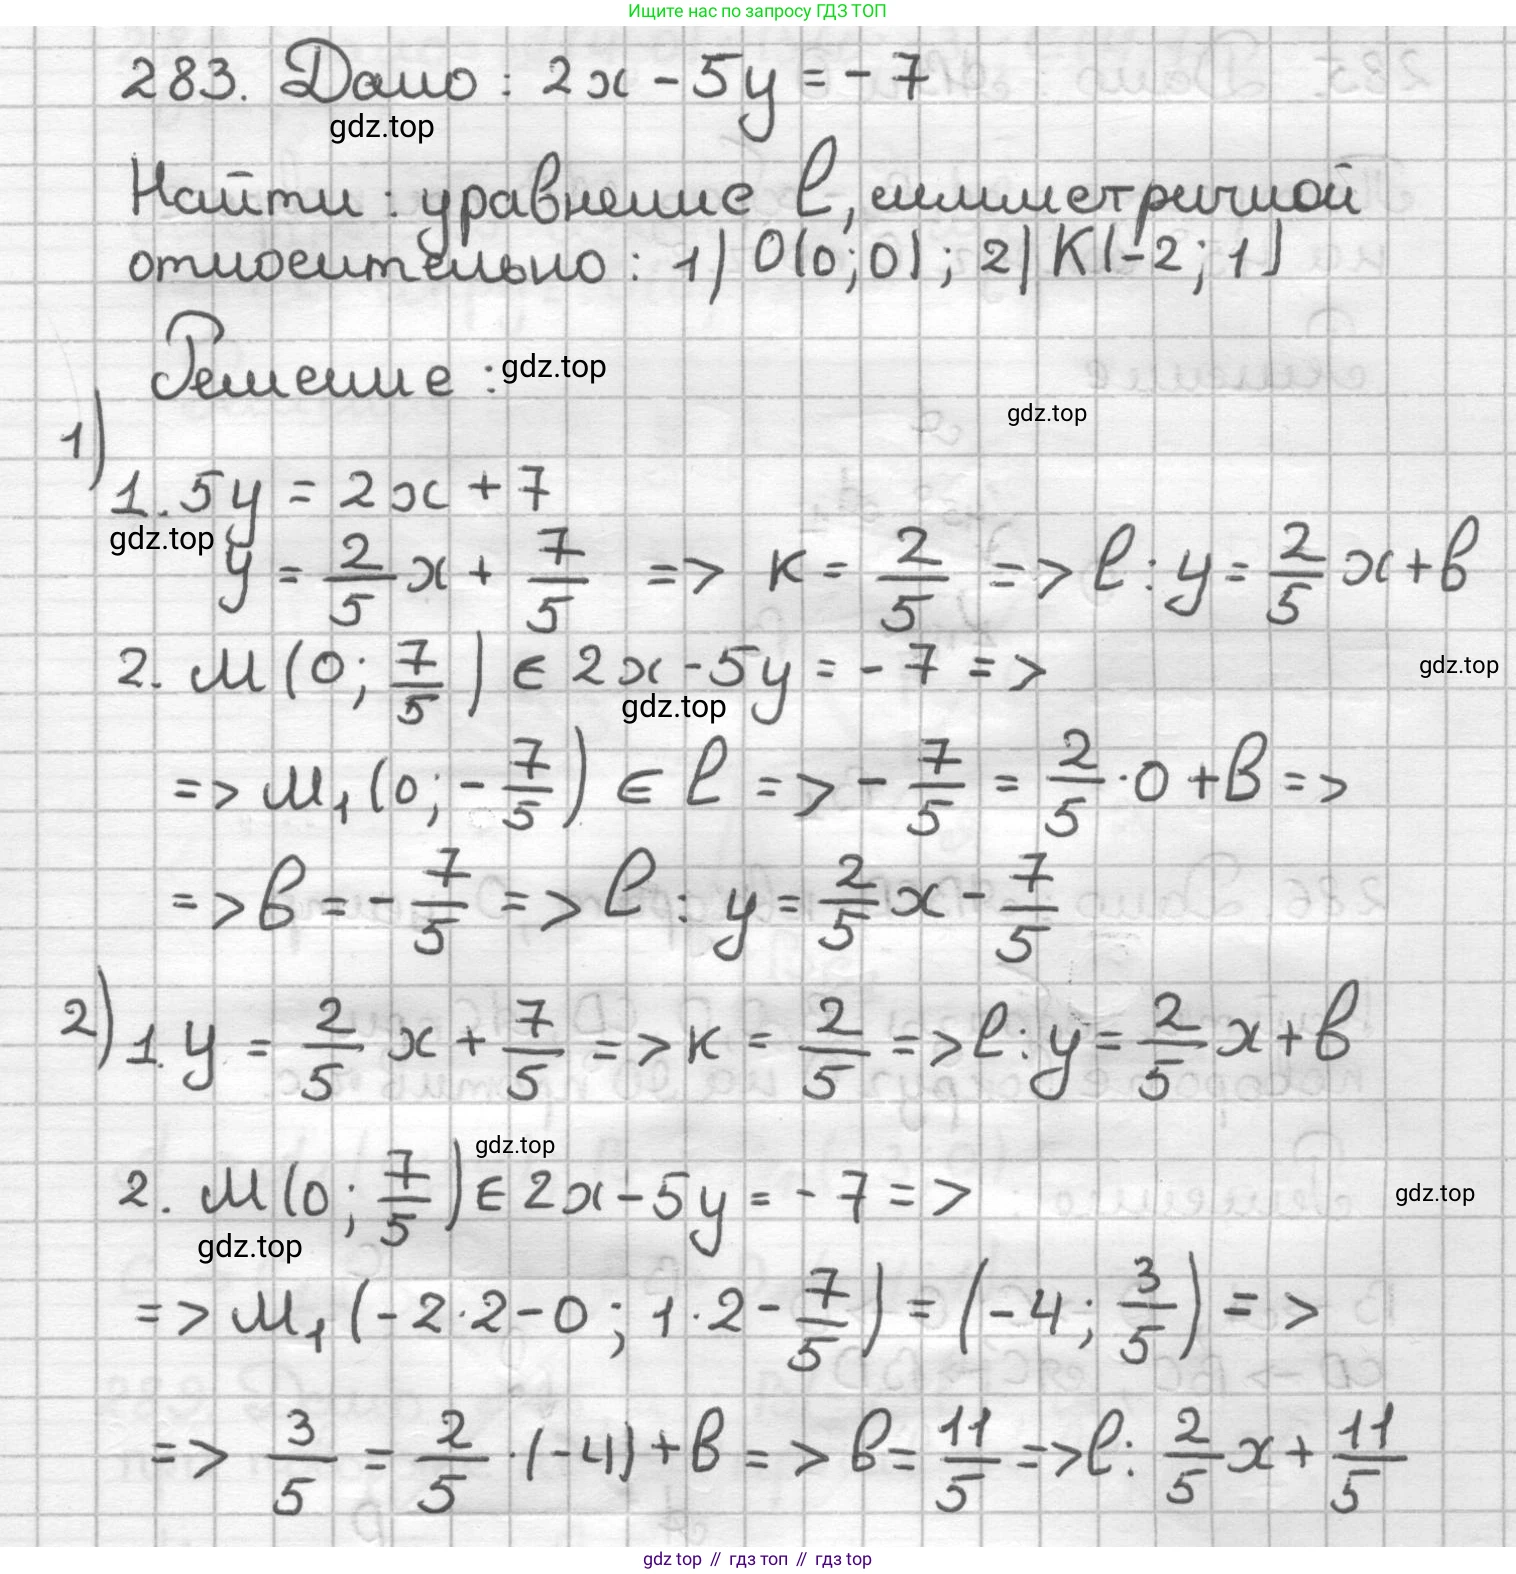 Ищите нас по запросу ГДЗ ТОП
283. Дано: 2x - 5y = - 7
gdz.top
Найти: уравнение l, симметричной
относительно: 1) O(0;0); 2) K(-2; 1)
Решение:
gdz.top
gdz.top
1)
1. 5y = 2x + 7
gdz.top
y = 2/5 x + 7/5 => к = 2/5 => l: y = 2/5 x + b
gdz.top
2. M (0; 7/5) ∈ 2x - 5y = - 7 =>
gdz.top
=> M₁ (0; - 7/5) ∈ l => - 7/5 = 2/5 · 0 + b =>
=> b = - 7/5 => l: y = 2/5 x - 7/5
2) 1. y = 2/5 x + 7/5 => к = 2/5 => l: y = 2/5 x + b
gdz.top
2. M (0; 7/5) ∈ 2x - 5y = - 7 =>
gdz.top
gdz.top
=> M₁ (-2·2 - 0; 1·2 - 7/5) = (-4; 3/5) =>
=> 3/5 = 2/5 · (-4) + b => b = 11/5 => l: 2/5 x + 11/5
gdz top // гдз топ // гдз top